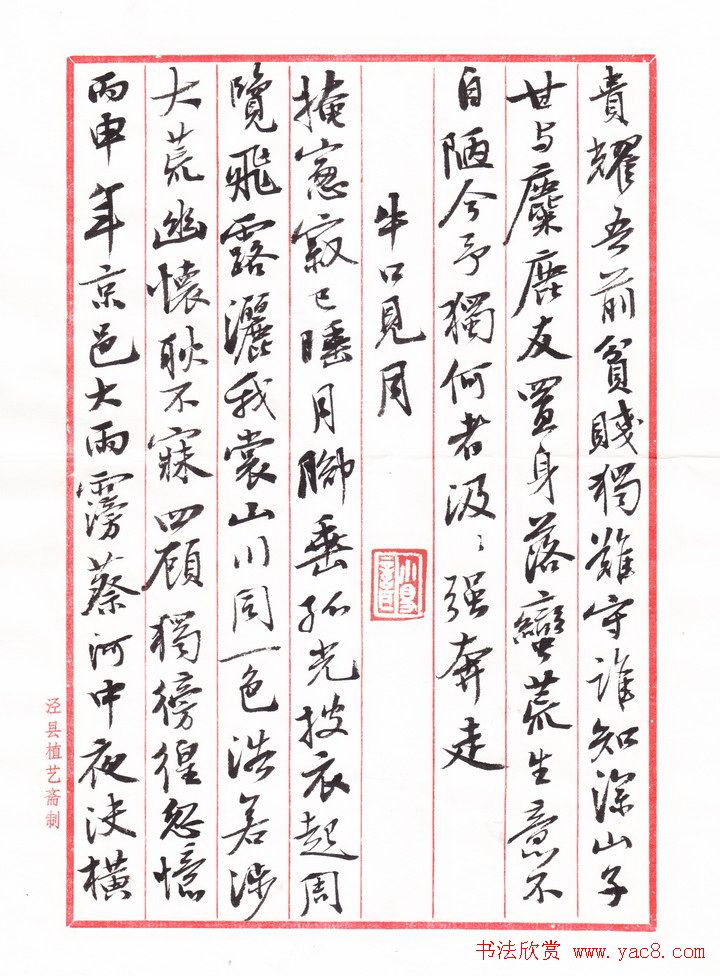 貴耀吾前貧賤獨難守誰知深山子
甘与麋鹿友置身落蠻荒生意不
自陋今予獨何者汲〻强奔走
牛口見月
掩窻寂已睡月腳垂孤光披衣起周
覽飛露灑我裳山川同一色浩若涉
大荒幽懷耿不寐四顾獨徬徨忽憶
丙申年京邑大雨霶蔡河中夜决橫
泾县植艺斋制
书法欣赏 www.yac8.com